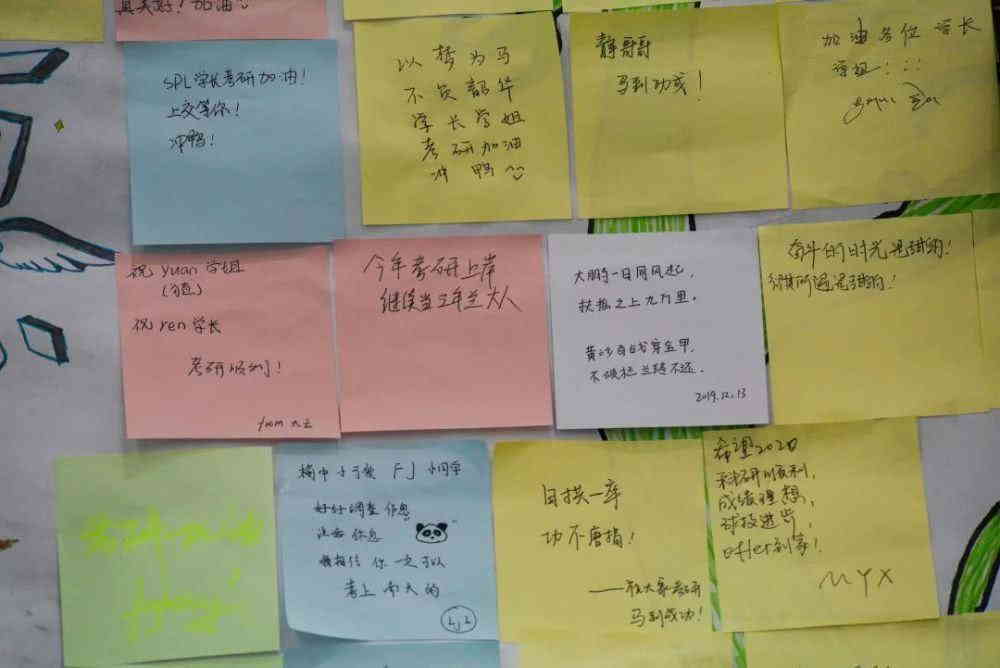 真美好！加油
SPL学长考研加油！
上交等你！
冲鸭！
以梦为马
不负韶华
学长学姐
考研加油
冲鸭
静哥哥
马到功成！
加油各位学长
学姐：：：
祝 yuan 学姐
祝 ren 学长
考研顺利！
from
今年考研上岸
继续当三年兰大人
大鹏一日同风起，
扶摇之上九万里。
黄沙百战穿金甲，
不破楼兰终不还。
2019.12.13
奋斗的时光是甜的！
是甜的！
FJ 小同学
好好调整作息
注意休息
我相信你一定可以
考上南大的
LJL
日拱一卒
功不唐捐！
——祝大家考研
马到成功！
希望2020
科研顺利，
成绩理想，
球技进步，
offer到家！
MYX